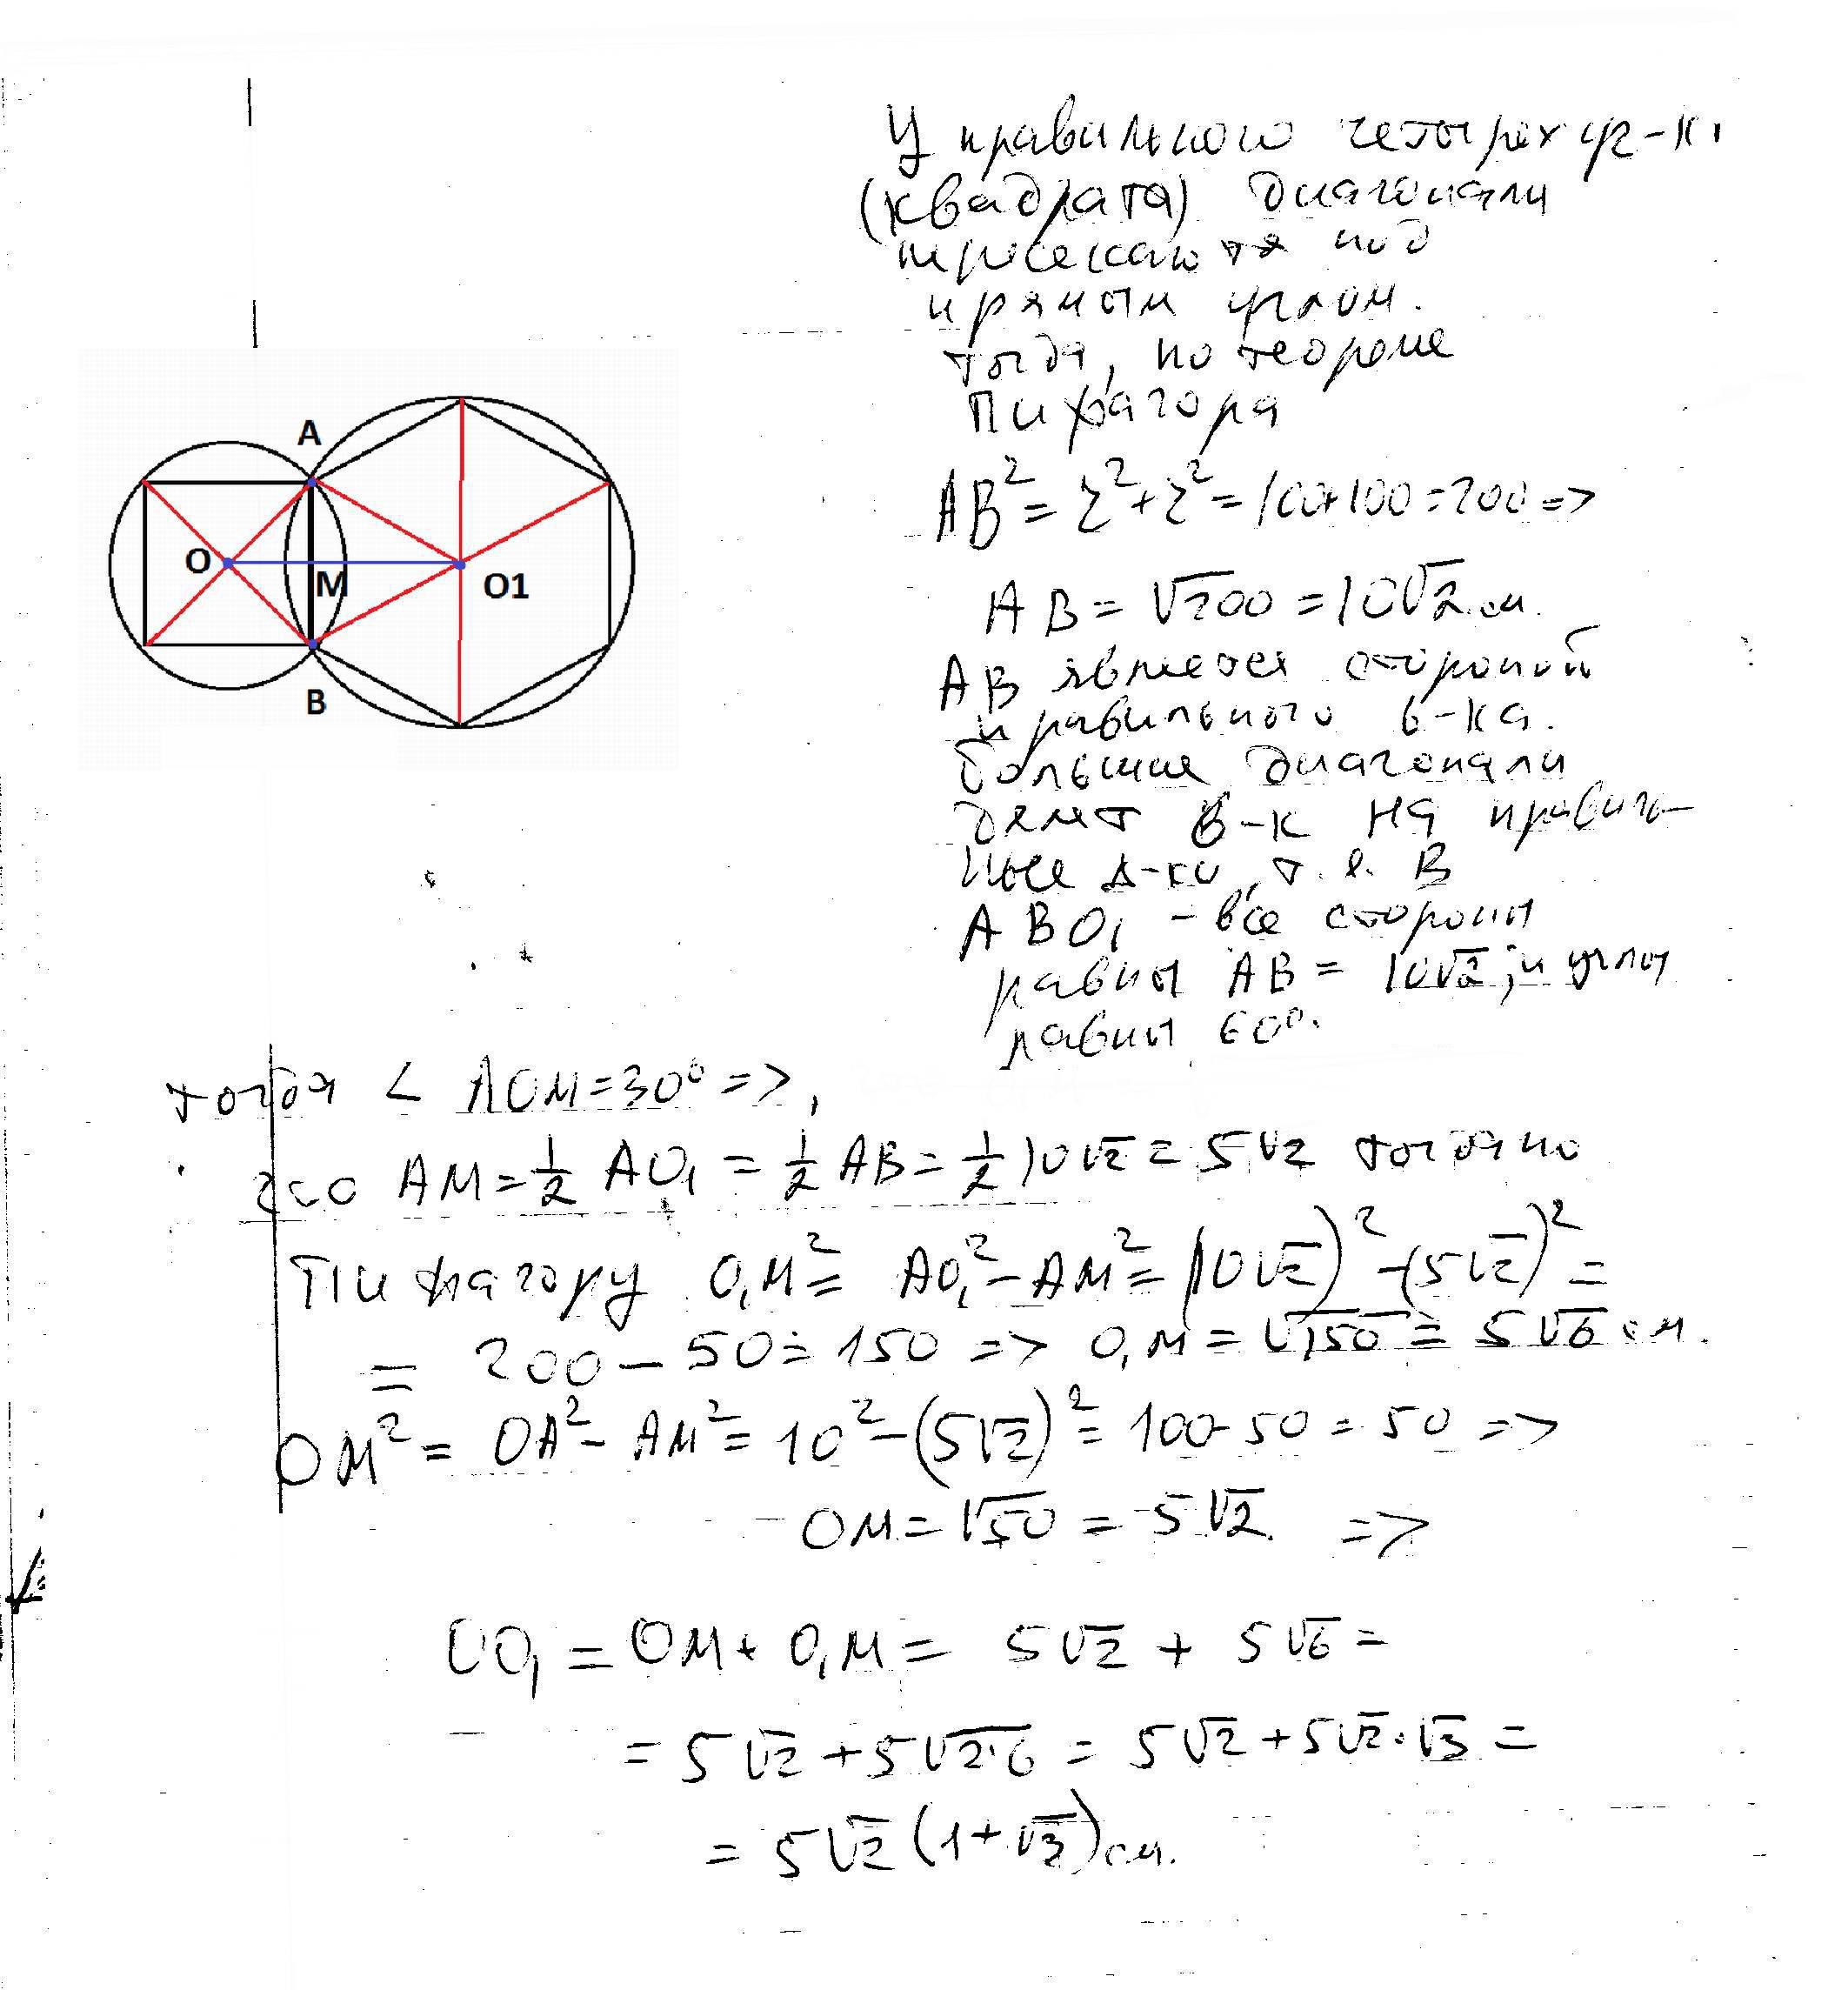 У правильного четырехуг-к.
(квадрата) диагонали
пресекаются под
прямым углом.
тогда, по теореме
Пифагора
AB² = r² + r² = 100+100 = 200 =>
AB = √200 = 10√2 см.
AB является стороной
правильного 6-ка.
большие диагонали
делят 6-к на правиль-
ные Δ-ки, т. е. в
ABO₁ - все стороны
равны AB = 10√2; и углы
равны 60°.
A
O
M
O1
B
тогда < AOM = 30° =>,
что AM = 1/2 AO₁ = 1/2 AB = 1/2 10√2 = 5√2 тогда по
Пифагору O₁M² = AO₁² - AM² = (10√2)² - (5√2)² =
= 200 - 50 = 150 => O₁M = √150 = 5√6 см.
OM² = OA² - AM² = 10² - (5√2)² = 100 - 50 = 50 =>
OM = √50 = 5√2 =>
OO₁ = OM + O₁M = 5√2 + 5√6 =
= 5√2 + 5√2·6 = 5√2 + 5√2·√3 =
= 5√2 (1+√3) см.